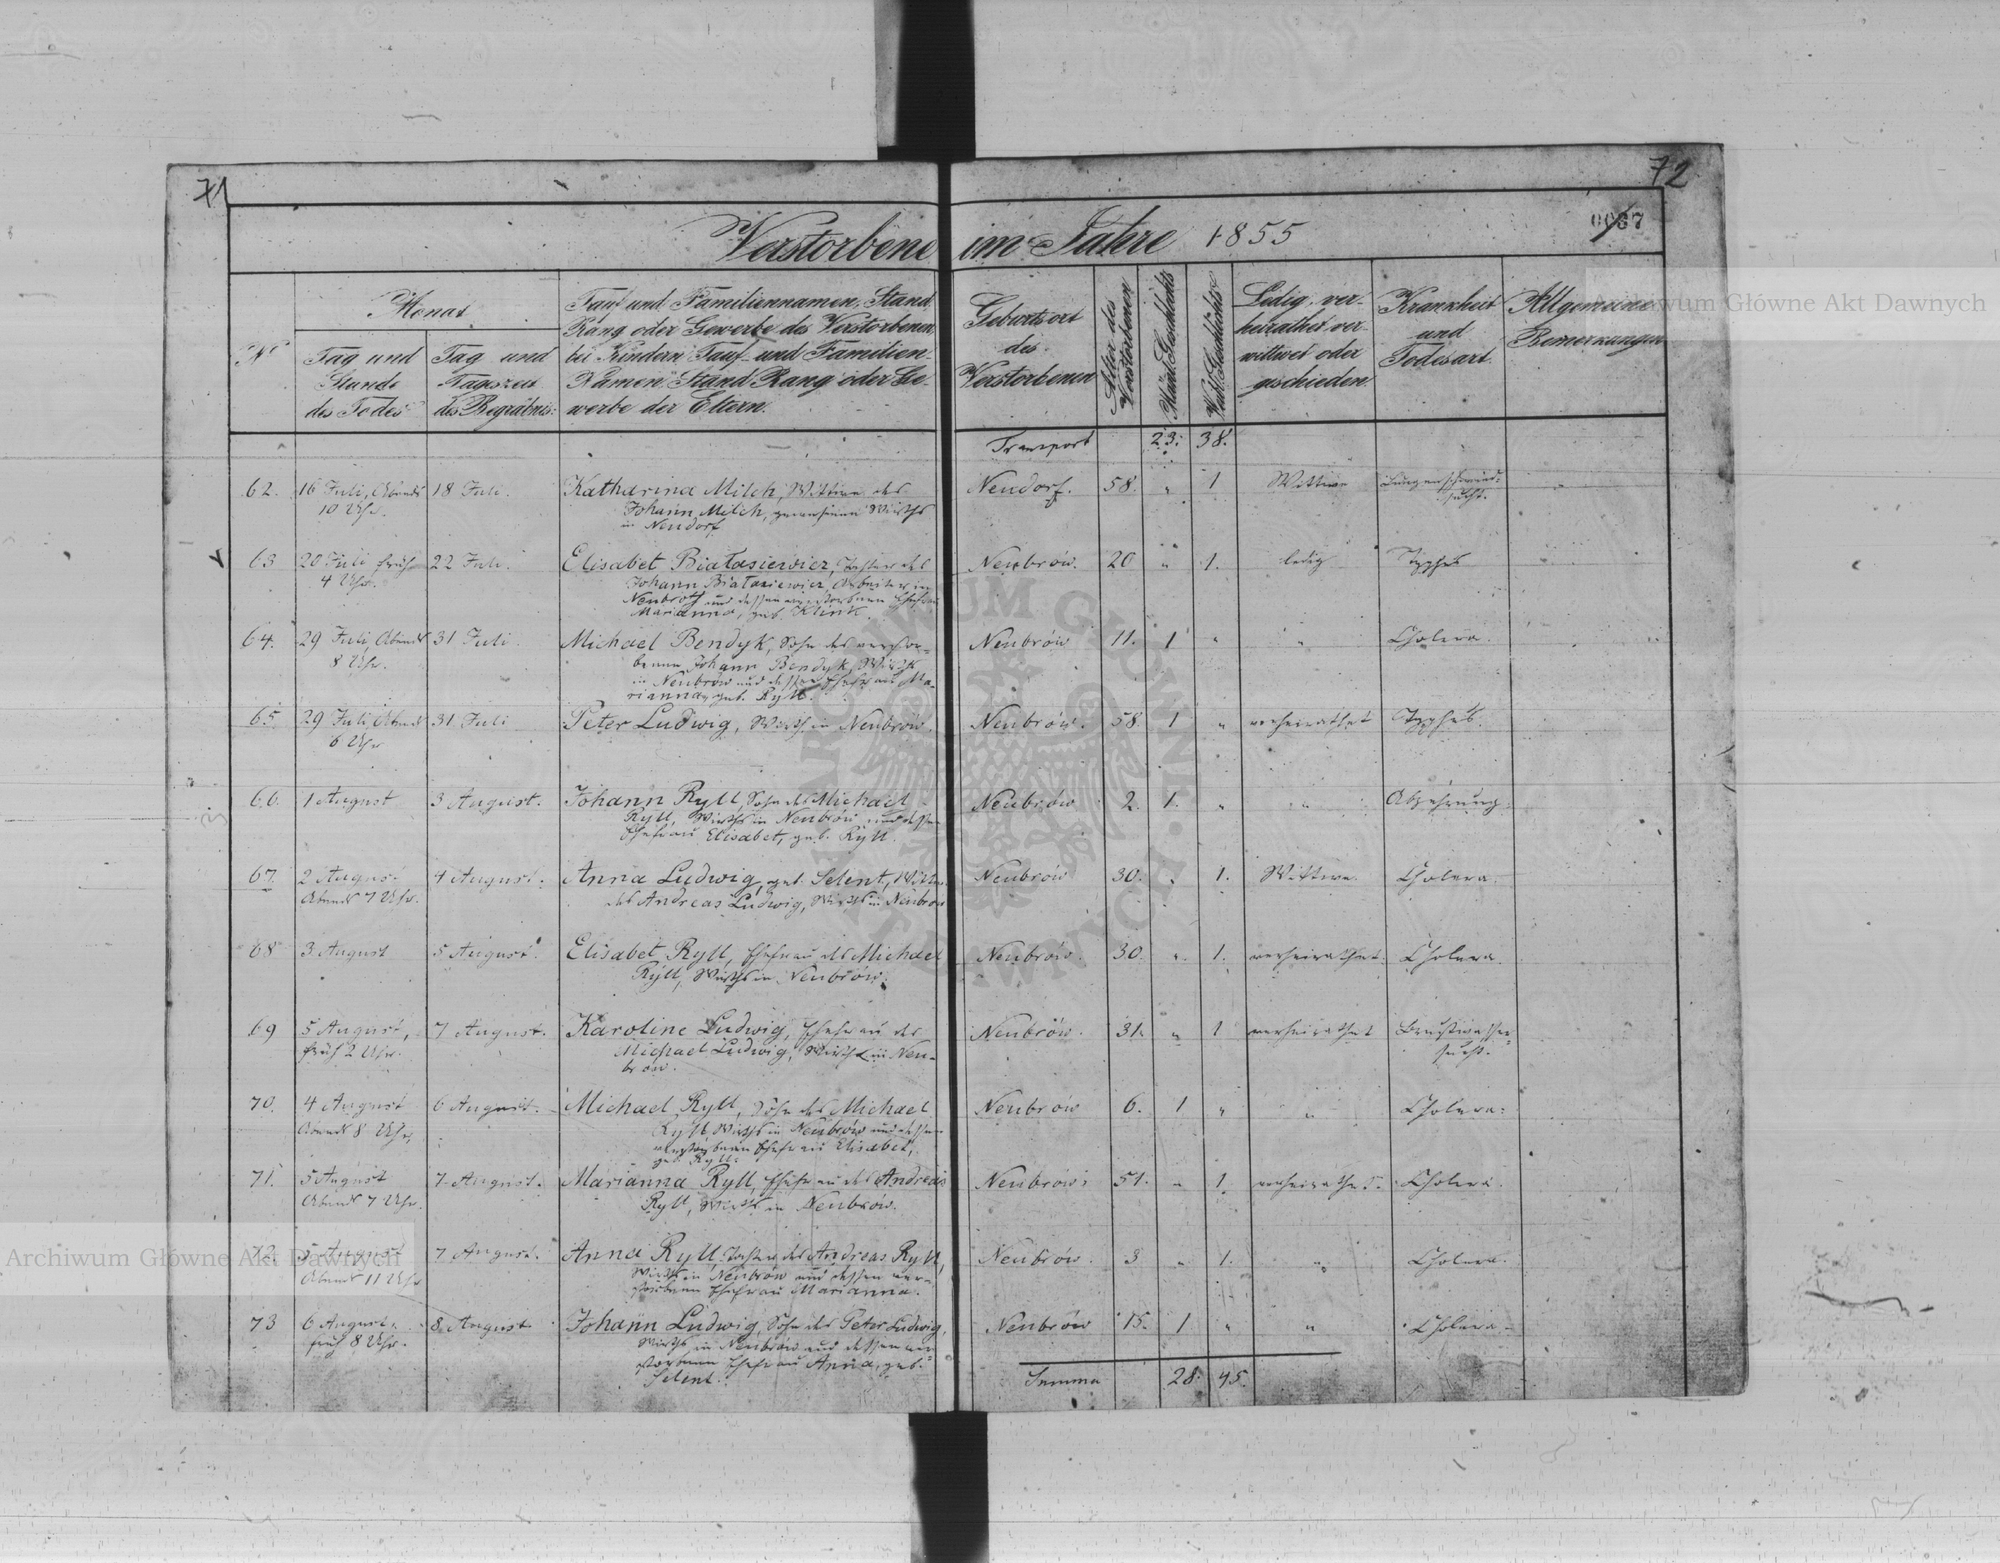 71
72
Verstorbene im Jahre 1855
0067
No
Monat
Tag und
Stunde
des Todes
Tag und
Tagszeit
des Begräbnis:
Tauf und Familiennamen, Stand
Rang oder Gewerbe des Verstorbenen
bei Kindern Tauf- und Familien-
Namen Stand Rang oder Ge-
werbe der Eltern.
Geburtsort
des
Verstorbenen
Alter des
Verstorbenen
Mänl. Geschlechts
Weibl. Geschlechts
Ledig, ver-
heirathet ver-
wittwet oder
geschieden
Krankheit
und
Todesart.
Allgemeine
Bemerkungen
Transport 23. 38.
62. 16 Juli, Abends 18 Juli. Katharina Milch, Wittwe des Neudorf. 58. „ 1 Wittwe Lungenschwind-
10 Uhr. Johann Milch, gewesenen Wirths sucht.
in Neudorf
63 20 Juli früh 22 Juli. Elisabet Białasiewicz, Tochter des Neubrów. 20 „ 1. ledig Typhus
4 Uhr. Johann Białasiewicz, Arbeiter in
Neubrow und dessen verstorbenen Ehefrau
Marianna, geb. Klink.
64. 29 Juli, Abends 31 Juli. Michael Bendyk, Sohn des verstor- Neubrów 11. 1 „ „ Cholera.
8 Uhr. benen Johann Bendyk, Wirths
in Neubrów und dessen Ehefrau Ma-
rianna, geb. Ryll.
65 29 Juli, Abends 31 Juli Peter Ludwig, Wirth in Neubrów. Neubrów. 58. 1 „ verheirathet Typhus.
6 Uhr
66. 1 August 3 August. Johann Ryll, Sohn des Michael Neubrów 2. 1. „ „ Abzehrung.
Ryll, Wirths in Neubrów und dessen
Ehefrau Elisabet, geb. Ryll.
67. 2 August 4 August. Anna Ludwig, geb. Selent, Wittwe Neubrów 30. „ 1. Wittwe Cholera.
Abends 7 Uhr. des Andreas Ludwig, Wirths in Neubrow
68 3 August 5 August. Elisabet Ryll, Ehefrau des Michael Neubrów. 30. „ 1. verheirathet. Cholera.
Ryll, Wirths in Neubrów.
69 5 August, 7 August. Karoline Ludwig, Ehefrau des Neubrów. 31. „ 1 verheirathet Brustwasser-
früh 2 Uhr. Michael Ludwig, Wirths in Neu- sucht.
brów.
70. 4 August 6 August. Michael Ryll, Sohn des Michael Neubrów 6. 1 „ „ Cholera.
Abends 8 Uhr. Ryll, Wirths in Neubrów und dessen
verstorbenen Ehefrau Elisabet,
geb. Ryll.
71. 5 August 7 August. Marianna Ryll, Ehefrau des Andreas Neubrów 51. „ 1. verheirathet. Cholera.
Abends 7 Uhr. Ryll, Wirths in Neubrów.
72. 5 August 7 August. Anna Ryll, Tochter des Andreas Ryll, Neubrów. 3 „ 1. „ Cholera.
Abends 11 Uhr Wirths in Neubrów und dessen ver-
storbenen Ehefrau Marianna.
73 6 August, 8 August Johann Ludwig, Sohn des Peter Ludwig, Neubrów 15. 1 „ „ Cholera.
früh 8 Uhr. Wirths in Neubrów und dessen ver-
storbenen Ehefrau Anna, geb.
Selent.
Summa 28. 45.
Archiwum Główne Akt Dawnych
Archiwum Główne Akt Dawnych
ARCHIWUM GŁÓWNE AKT DAWNYCH